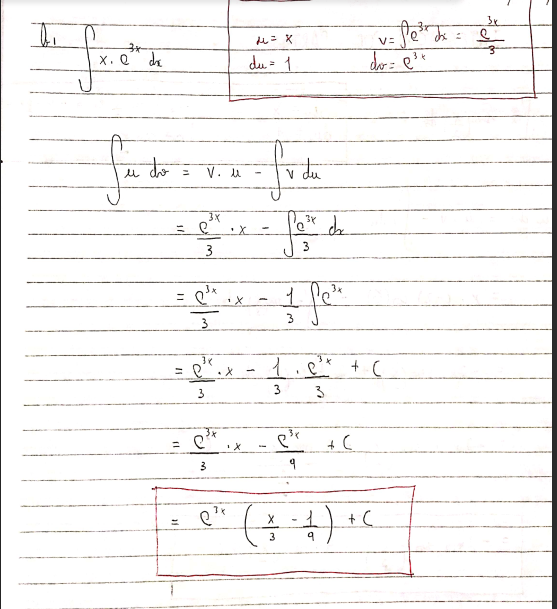 b. ∫ x · e^{3x} dx
u = x    v = ∫ e^{3x} dx = e^{3x}/3
du = 1    dv = e^{3x}
∫ u dv = v · u - ∫ v du
= e^{3x}/3 · x - ∫ e^{3x}/3 dx
= e^{3x}/3 · x - 1/3 ∫ e^{3x}
= e^{3x}/3 · x - 1/3 · e^{3x}/3 + C
= e^{3x}/3 · x - e^{3x}/9 + C
= e^{3x} (x/3 - 1/9) + C